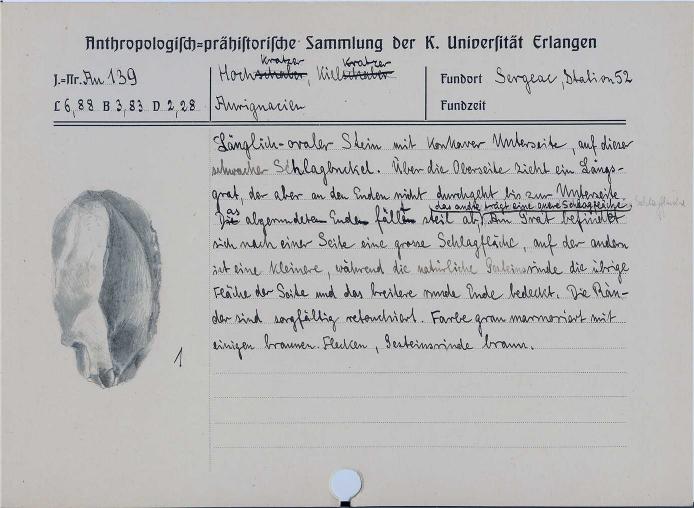 Anthropologisch=prähistorische Sammlung der K. Universität Erlangen
J.=Nr. Au 139
L 6,88 B 3,83 D 2,28
Kratzer Kratzer
Hochschaber, Kielschaber
Aurignacien
Fundort Sergeac, Station 52
Fundzeit
Länglich-ovaler Stein mit konkaver Unterseite, auf dieser
schwacher Schlagbuckel. Über die Oberseite zieht ein Längs-
grat, der aber an den Enden nicht durchgeht bis zur Unterseite.
das andre trägt eine obere Schlagfläche
Schlagfläche
Das abgerundete Ende fällt steil ab, Am Grat befindet
sich nach einer Seite eine grosse Schlagfläche, auf der andern
ist eine kleinere, während die natürliche Gesteinsrinde die übrige
Fläche der Seite und das breitere runde Ende bedeckt. Die Rän-
der sind sorgfältig retouchiert. Farbe grau marmoriert mit
einigen braunen Flecken, Gesteinsrinde braun.
1